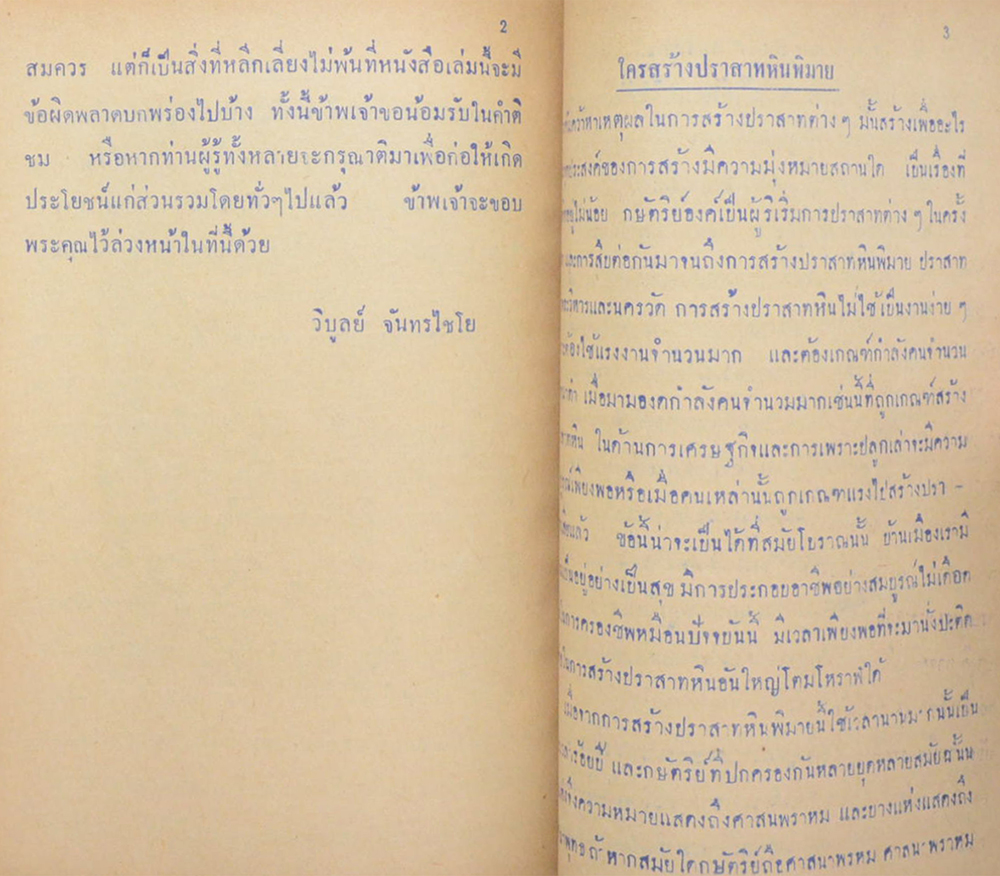 2
สมควร แต่ก็เป็นสิ่งที่หลีกเลี่ยงไม่พ้นที่หนังสือเล่มนี้จะมี
ข้อผิดพลาดบกพร่องไปบ้าง ทั้งนี้ข้าพเจ้าขอน้อมรับในคำติ
ชม หรือหากท่านผู้รู้ทั้งหลายจะกรุณาติมาเพื่อก่อให้เกิด
ประโยชน์แก่ส่วนรวมโดยทั่วๆไปแล้ว ข้าพเจ้าจะขอบ
พระคุณไว้ล่วงหน้าในที่นี้ด้วย
วิบูลย์ จันทรไชโย
3
ใครสร้างปราสาทหินพิมาย
เหตุผลในการสร้างปราสาทต่าง ๆ มั้นสร้างเพื่ออะไร
ประสงค์ของการสร้างมีความมุ่งหมายสถานใด เป็นเรื่องที่
ไม่น้อย กษัตริย์องค์เป็นผู้ริเริ่มการปราสาทต่าง ๆ ในครั้ง
และการสืบต่อกันมาจนถึงการสร้างปราสาทหินพิมาย ปราสาท
และนครวัด การสร้างปราสาทหินไม่ใช้เป็นงานง่าย ๆ
ต้องใช้แรงงานจำนวนมาก และต้องเกณฑ์กำลังคนจำนวน
เมื่อมามองดกำลังคนจำนวมมากเช่นนี้ที่ถูกเกณฑ์สร้าง
ในด้านการเศรษฐกิจและการเพราะปลูกเล่าจะมีความ
เพียงพอหรือเมื่อคนเหล่านั้นถูกเกณฑแรงไปสร้างปรา –
แล้ว ข้อนี้น่าจะเป็นได้ที่สมัยโบราณนั้น บ้านเมืองเรามี
อยู่อย่างเป็นสุข มีการประกอบอาชีพอย่างสมบูรณ์ไม่เดือด
การครองชีพหมือนปัจจบันนี้ มีเวลาเพียงพอที่จะมานั่งประดิด
ในการสร้างปราสาทหินอันใหญ่โตมโหราฬได้
เนื่อจากการสร้างปราสาทหินพิมายนี้ใช้เวลานานมากนั้นเป็น
ร้อยปี และกษัตริย์ที่ปกครองกันหลายยุคหลายสมัยฉนั้น
ความหมายแสดงถึงศาสนพราหม และบางแห่งแสดงถึง
ถ้าหากสมัยใดกษัตริย์ถือศาสนาพรหม ศาสนาพราหม